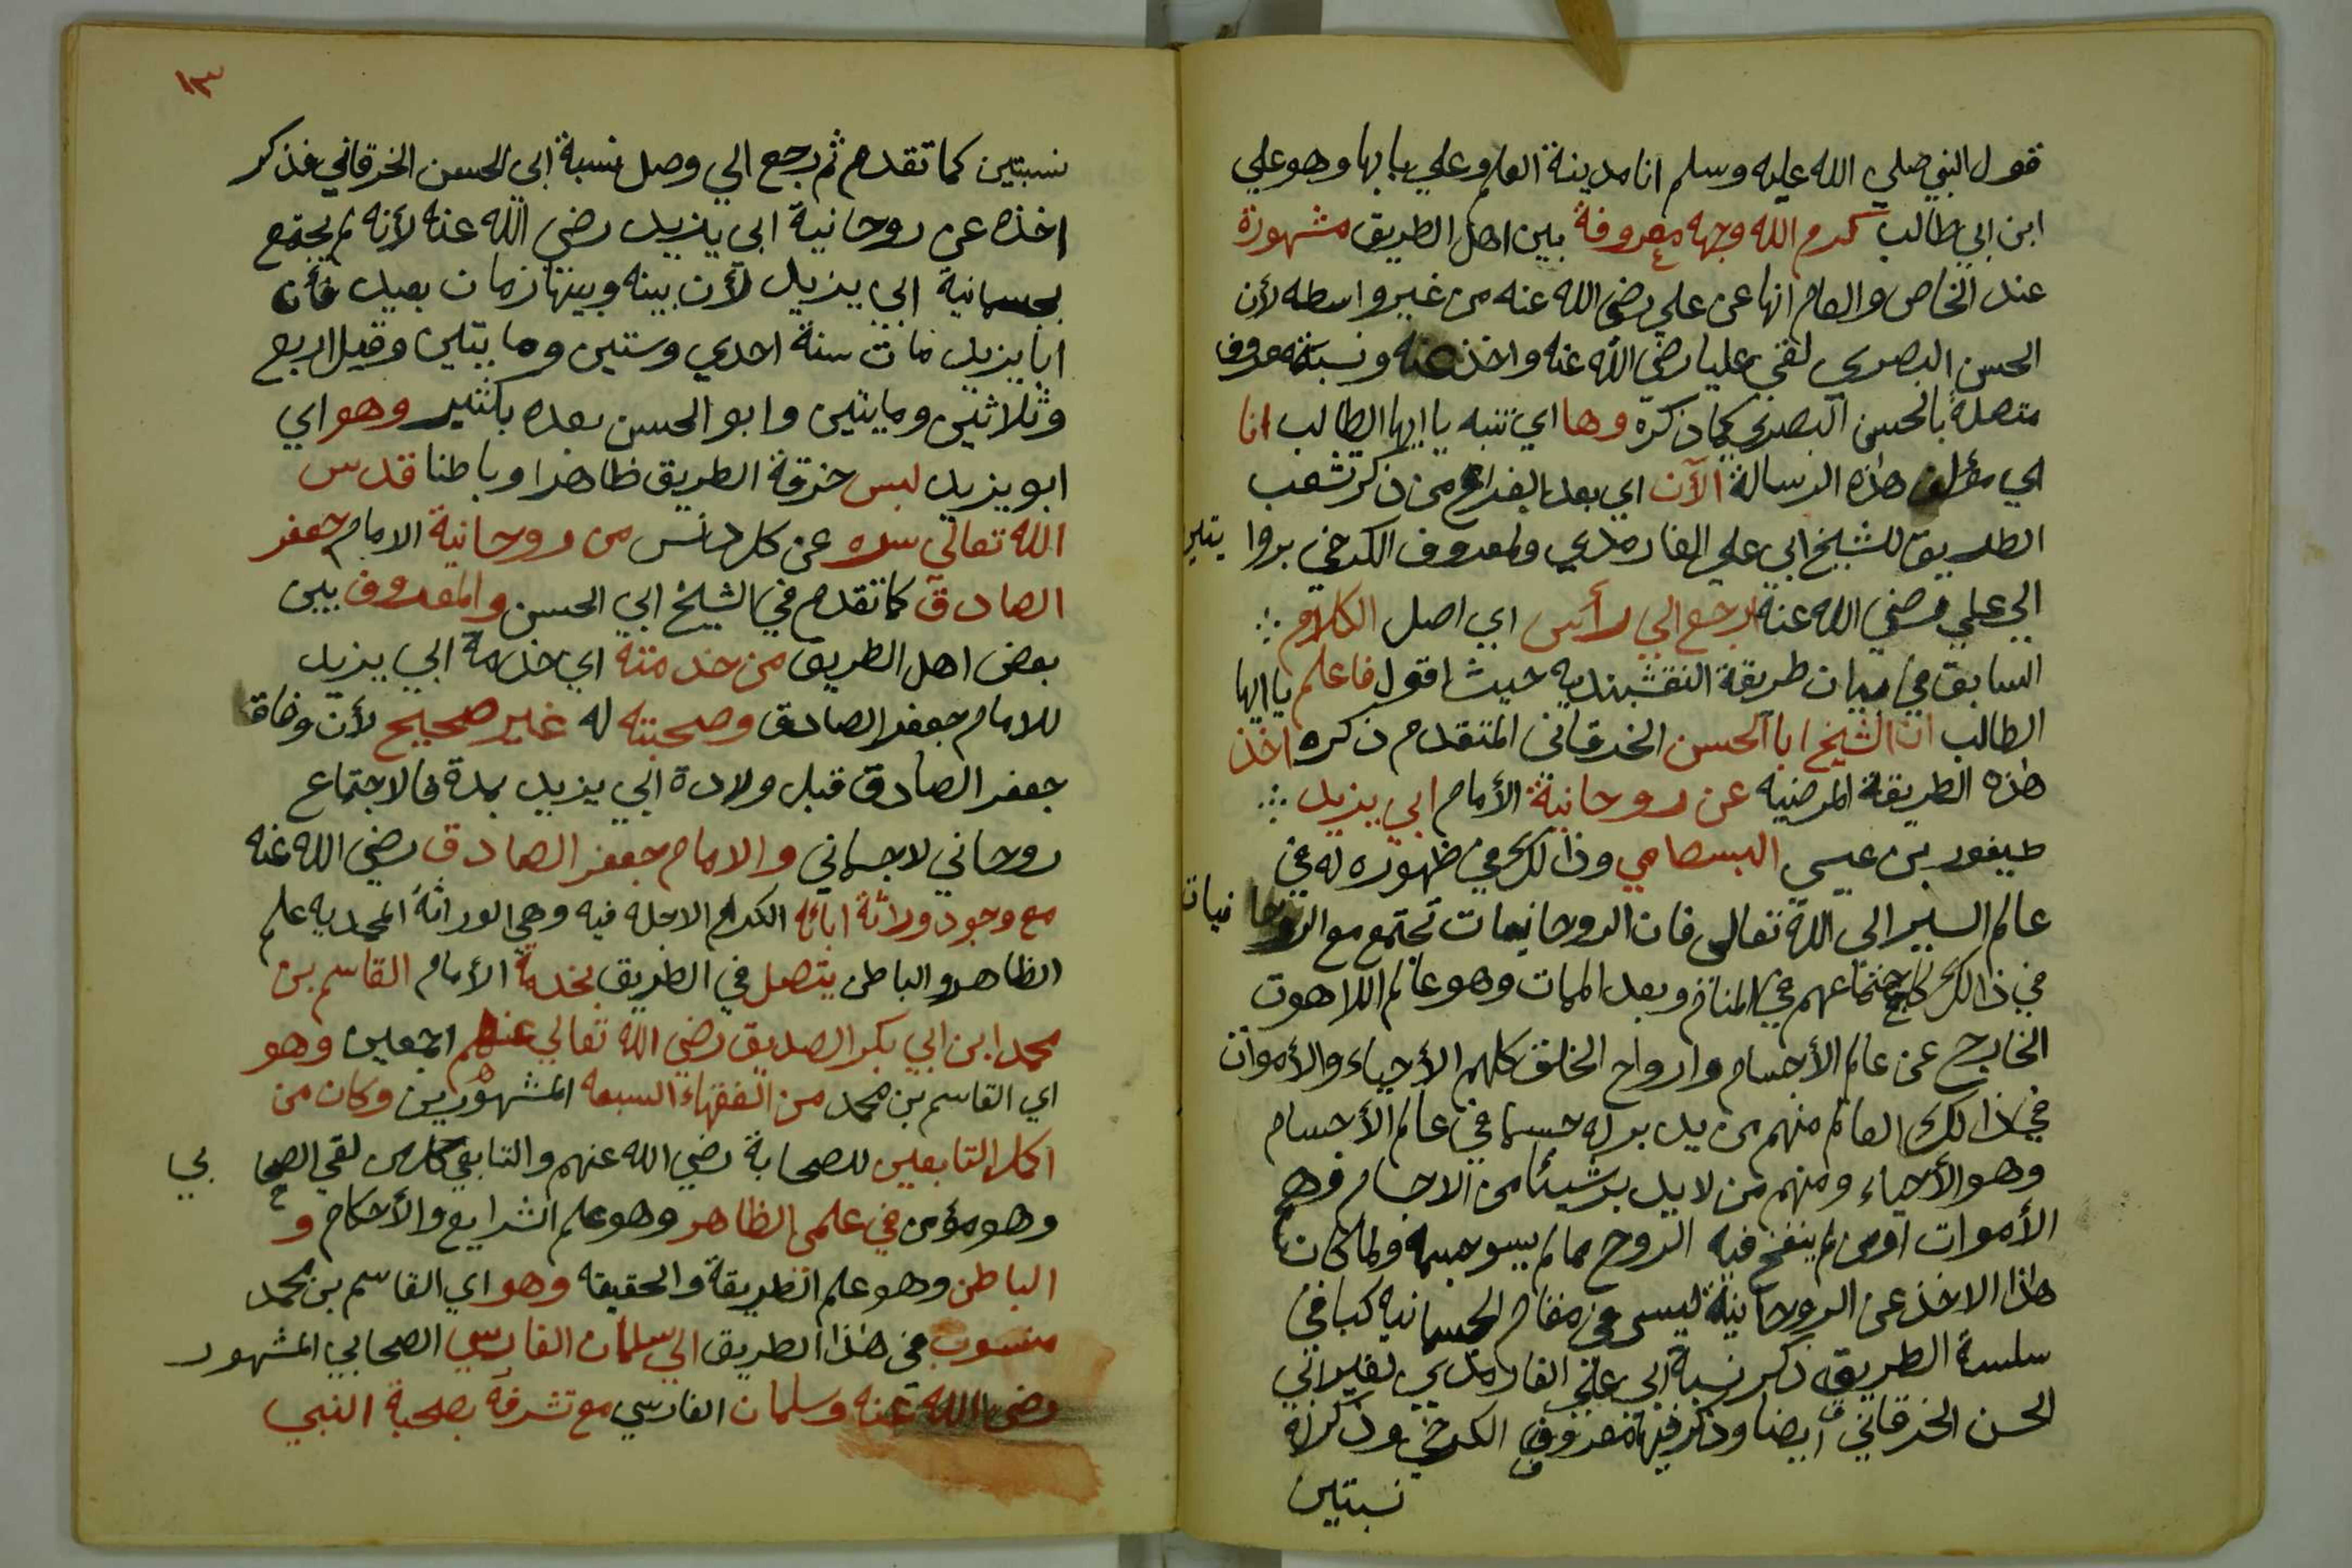 قول النبي صلي الله عليه وسلم انا مدينة العلم وعلي بابها وهو علي
ابن ابي طالب كرم الله وجهه معروفة بين اهل الطريق مشهورة
عند الخاص والعام انها عن علي رضي الله عنه من غير واسطه لأن
الحسن البصري لقي عليا رضي الله عنه واخذ عنه ونسبته معروف
متصلة بالحسن البصري كما ذكره وها اي تنبه يا ايها الطالب انا
اي مؤلف هذه الرسالة الآن اي بعد الفراغ من ذكر تشعب
الطريق للشيخ ابي علي الفارمدي ولمعروف الكرخي بروايتين
الي علي رضي الله عنه ارجع الي رأس اي اصل الكلام
السابق في بيان طريقة النقشبنديه حيث اقول فاعلم يا ايها
الطالب ان الشيخ ابا الحسن الخرقاني المتقدم ذكره اخذ
هذه الطريقة المرضيه عن روحانية الأمام ابي يزيد
طيفور بن عيسي البسطامي وذالك في ظهوره له في
عالم السير الي الله تعالى فان الروحانيات تجتمع مع الروحانيات
في ذالك كاجتماعهم في المنام وبعد الممات وهو عالم اللاهوت
الخارج عن عالم الأجسام وارواح الخلق كلهم الأحياء والأموات
في ذالك العالم منهم من يدبر له جسما في عالم الأجسام
وهو الأحياء ومنهم من لا يدبر شيئا من الاجسام وهم
الأموات او من لم ينفخ فيه الروح مما لم يسو جسمه ولما كان
هذا الاخذ عن الروحانية ليس في مقام الجسمانيه كباقي
سلسة الطريق ذكر نسبة ابي علي الفارمدي لغير ابي
الحسن الخرقاني ايضا وذكر فيها معروف الكرخي وذكر له
نسبتين
١٣
نسبتين كما تقدم ثم رجع الي وصل نسبة ابي الحسن الخرقاني فذكر
اخذه عن روحانية ابي يزيد رضي الله عنه لأنه لم يجتمع
بجسمانية ابي يزيد لأن بينه وبينها زمان بعيد فأن
ابا يزيد مات سنة احدي وستين ومايتين وقيل اربع
وثلاثين ومايتين وابو الحسن بعده بكثير وهو اي
ابو يزيد لبس خرقة الطريق ظاهرا وباطنا قدس
الله تعالي سره عن كل دنس من روحانية الامام جعفر
الصادق كما تقدم في الشيخ ابي الحسن والمعروف بين
بعض اهل الطريق من خدمته اي خدمة ابي يزيد
للامام جعفر الصادق وصحبته له غير صحيح لأن وفاة
جعفر الصادق قبل ولادة ابي يزيد بمدة فالاجتماع
روحاني لا جسماني والامام جعفر الصادق رضي الله عنه
مع وجود وراثة ابائه الكرام الاجله فيه وهي الوراثة المحمديه علم
الظاهر والباطن يتصل في الطريق بخدمة الأمام القاسم بن
محمد ابن ابي بكر الصديق رضي الله تعالي عنهم اجمعين وهو
اي القاسم بن محمد من الفقهاء السبعه المشهورين وكان من
اكابر التابعين للصحابة رضي الله عنهم والتابعي كل من لقي الصحابي
وهو مؤمن في علمي الظاهر وهو علم الشرايع والأحكام و
الباطن وهو علم الطريقة والحقيقه وهو اي القاسم بن محمد
منسوب في هذا الطريق الي سلمان الفارسي الصحابي المشهور
رضي الله عنه وسلمان الفارسي مع تشرفه بصحبة النبي